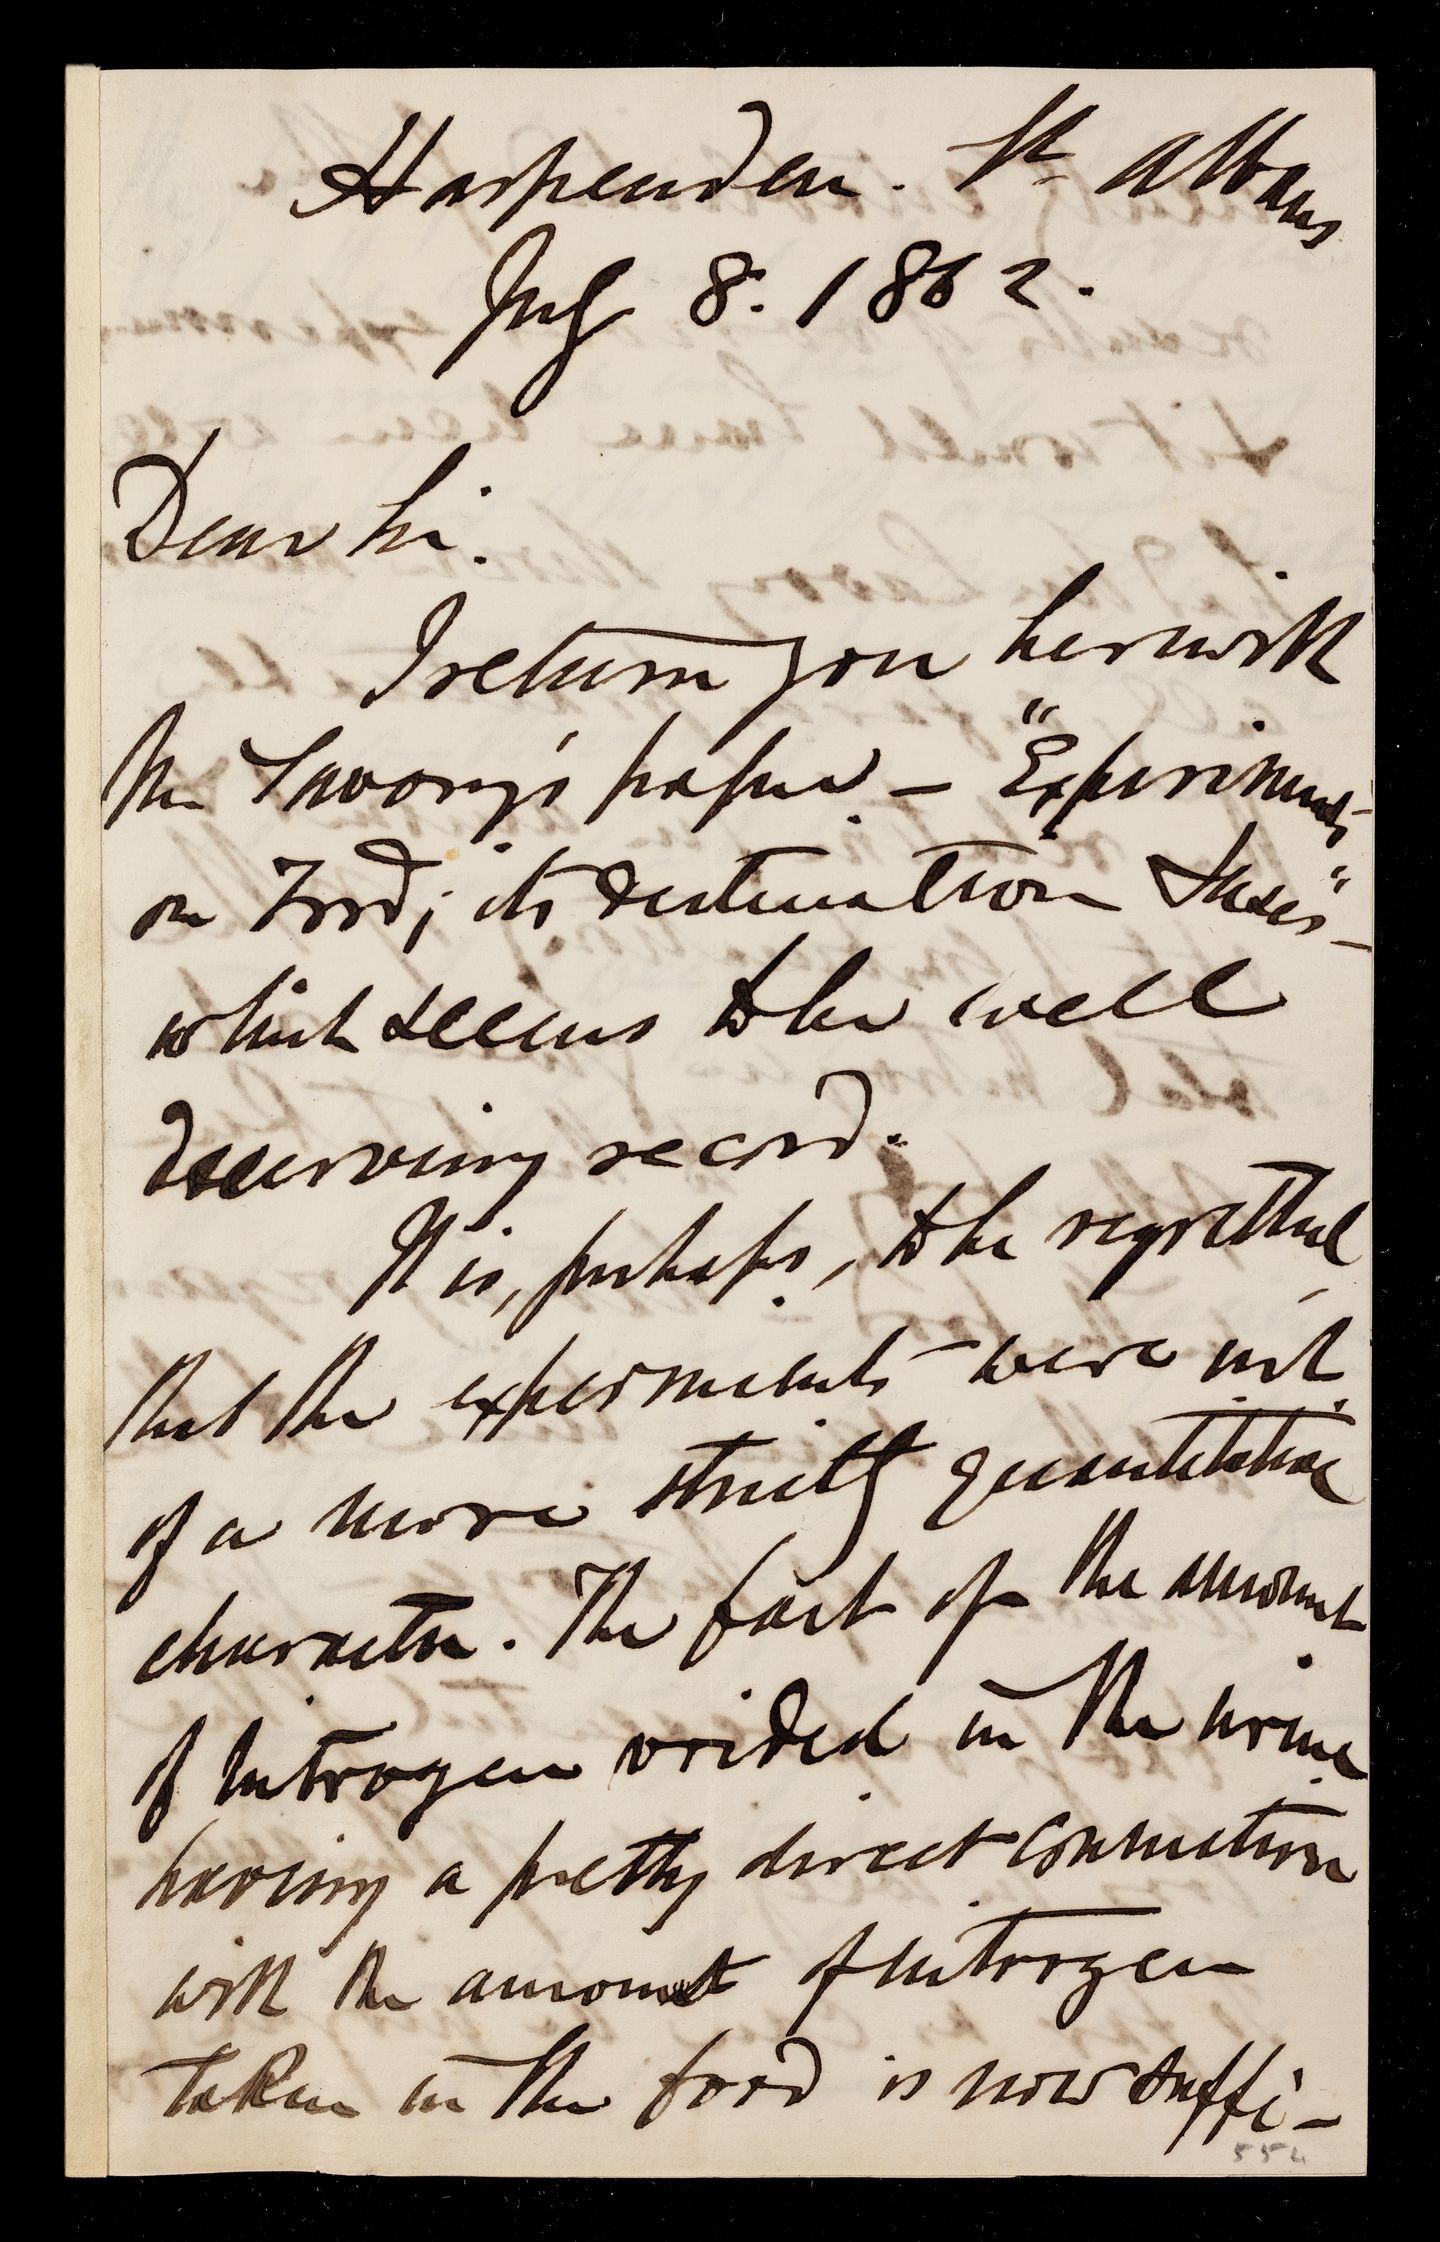 Harpenden. St Albans
July 8. 1862.
Dear Sir.
I return you herewith
Mr Savory's paper – "Experiments
on Food; its destination & uses" –
which seems to be well
deserving record.
It is, perhaps, to be regretted
that the experiments were not
of a more strictly quantitative
character. The fact of the amount
of nitrogen voided in the urine
having a pretty direct connection
with the amount of nitrogen
taken in the food is now suffi–
554